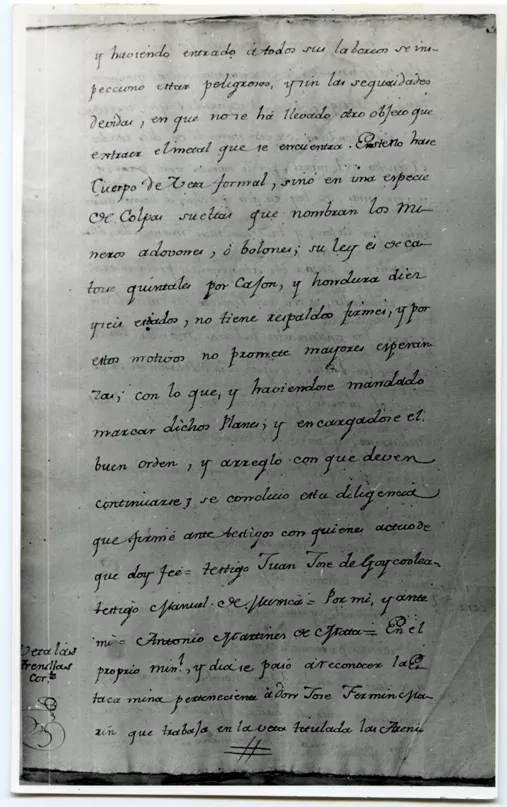 y haviendo entrado á todos sus laboreos se ins-
peccionó estar peligrosos, y sin las seguridades
devidas, en que no se há llevado otro objeto que
extraer el metal que se encuentra. Este no hace
Cuerpo de Veta formal, sinó en una especie
de Colpas sueltas que nombran los Mi-
neros adovones, ó bolones; su ley es de ca-
torse quintales por Cajon, y hondura diez
y seis estados, no tiene respaldos firmes, y por
estos motivos no promete mayores esperan-
zas; con lo que, y haviendose mandado
marcar dichos Planes, y encargadose el
buen orden, y arreglo con que deven
continuarse, se concluio esta diligencia
que firmé ante testigos con quienes actuo de
que doy feé= testigo Juan Jose de Goycoolea-
testigo Manuel de = Por mi, y ante
mi= Antonio Martines de Matta= En el
proprio min.l, y dia se pasó a reconocer la Es-
taca mina perteneciente á don Jose Fermin Ma-
rin que trabaja en la veta titulada las Areni-
Veta las
Trenillas
Cor.te